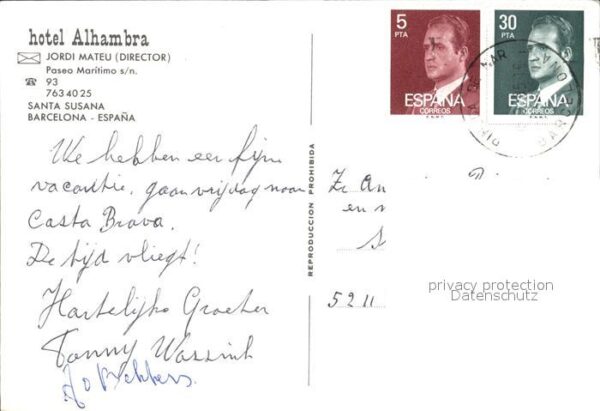 hotel Alhambra
JORDI MATEU (DIRECTOR)
Paseo Marítimo s/n.
93
763 40 25
SANTA SUSANA
BARCELONA - ESPAÑA
We hebben een fijne
vacantie, gaan vrijdag naar
Costa Brava.
De tijd vliegt!
Hartelijke Groeten
Tonny Wassink
Jo Bekkers.
REPRODUCCION PROHIBIDA
5
PTA
ESPAÑA
CORREOS
F.N.M.T.
30
PTA
ESPAÑA
CORREOS
F.N.M.T.
DE MAR
BARCELONA
en
5211
privacy protection
Datenschutz